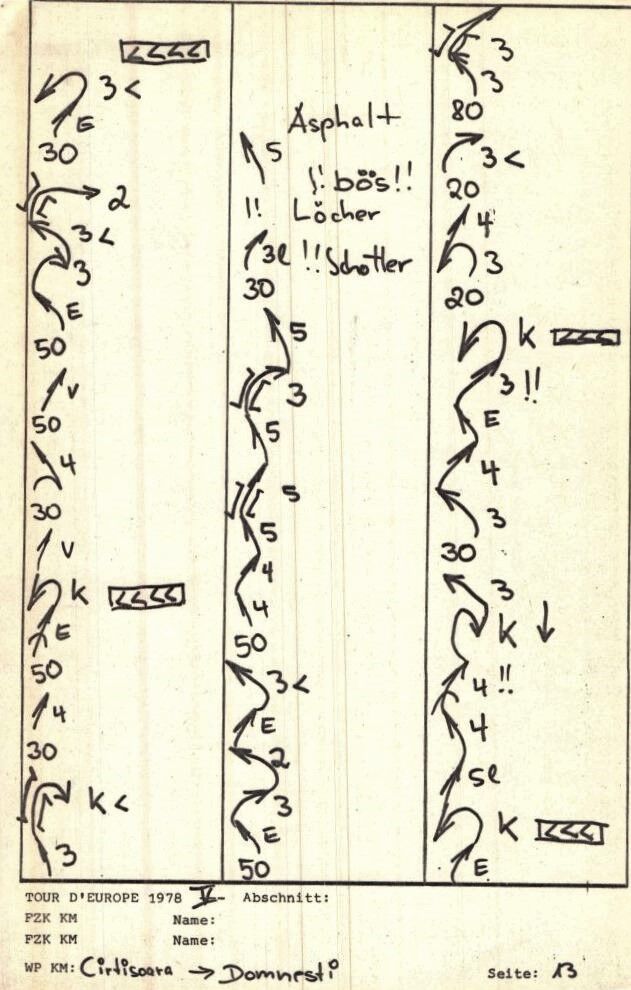 <<<<
3 <
E
30
2
3 <
3
E
50
V
50
4
30
V
K <<<<
E
50
4
30
K <
3
Asphalt
5
!! bös!!
!! Löcher
3l !! Schotter
30
5
3
5
5
5
4
4
50
3 <
E
2
3
E
50
3
3
80
3 <
20
4
3
20
K <<<
3 !!
E
4
3
30
3
K ↓
4 !!
4
5l
K <<<
E
TOUR D'EUROPE 1978 V- Abschnitt:
FZK KM Name:
FZK KM Name:
WP KM: Cirtisoara → Domnesti Seite: 13